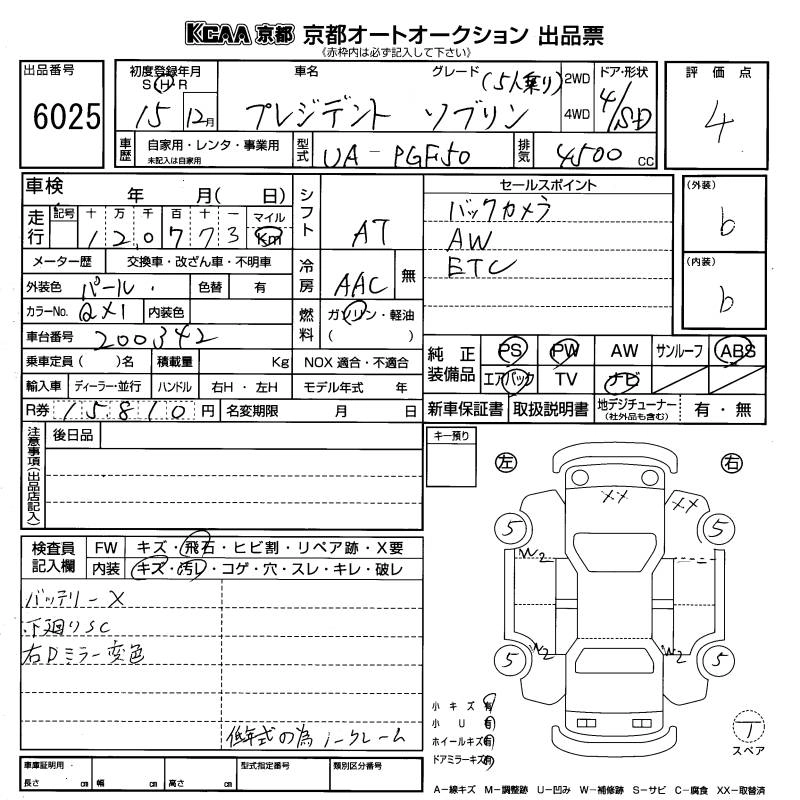 KCAA 京都 京都オートオークション 出品票
《赤枠内は必ず記入して下さい》
出品番号
6025
初度登録年月
S H R
15 12月
車名
グレード (5人乗り)
プレジデント ソブリン
2WD
4WD
ドア・形状
4/SD
評価点
4
車歴
自家用・レンタ・事業用
未記入は自家用
型式
UA-PGF50
排気
4500 cc
車検 年 月( 日)
走行
記号 十 万 千 百 十 一 マイル
1 2 0 7 7 3 Km
メーター歴 交換車・改ざん車・不明車
外装色 パール・ 色替 有
カラーNo. QX1 内装色
車台番号 200342
乗車定員( )名 積載量 Kg
輸入車 ディーラー・並行 ハンドル 右H・左H
R券 15810円 名変期限 月 日
シフト AT
冷房 AAC 無
燃料 ガソリン・軽油
( )
NOX 適合・不適合
モデル年式 年
セールスポイント
バックカメラ
AW
ETC
(外装)
b
(内装)
b
純正装備品
PS PW AW サンルーフ ABS
エアバック TV ナビ
新車保証書 取扱説明書 地デジチューナー(社外品も含む) 有・無
注意事項(出品店記入)
後日品
キー預り
左 右
XX XX
5 5
W2 W2
5 5
W2 W2
検査員記入欄
FW キズ・飛石・ヒビ割・リペア跡・X要
内装 キズ・汚レ・コゲ・穴・スレ・キレ・破レ
バッテリーX
下廻りSC
右Dミラー変色
低年式の為ノークレーム
小キズ有
小U有
ホイールキズ有
ドアミラーキズ有
T
スペア
車庫証明用
長さ cm 幅 cm 高さ cm
型式指定番号 類別区分番号
A−線キズ M−調整跡 U−凹み W−補修跡 S−サビ C−腐食 XX−取替済